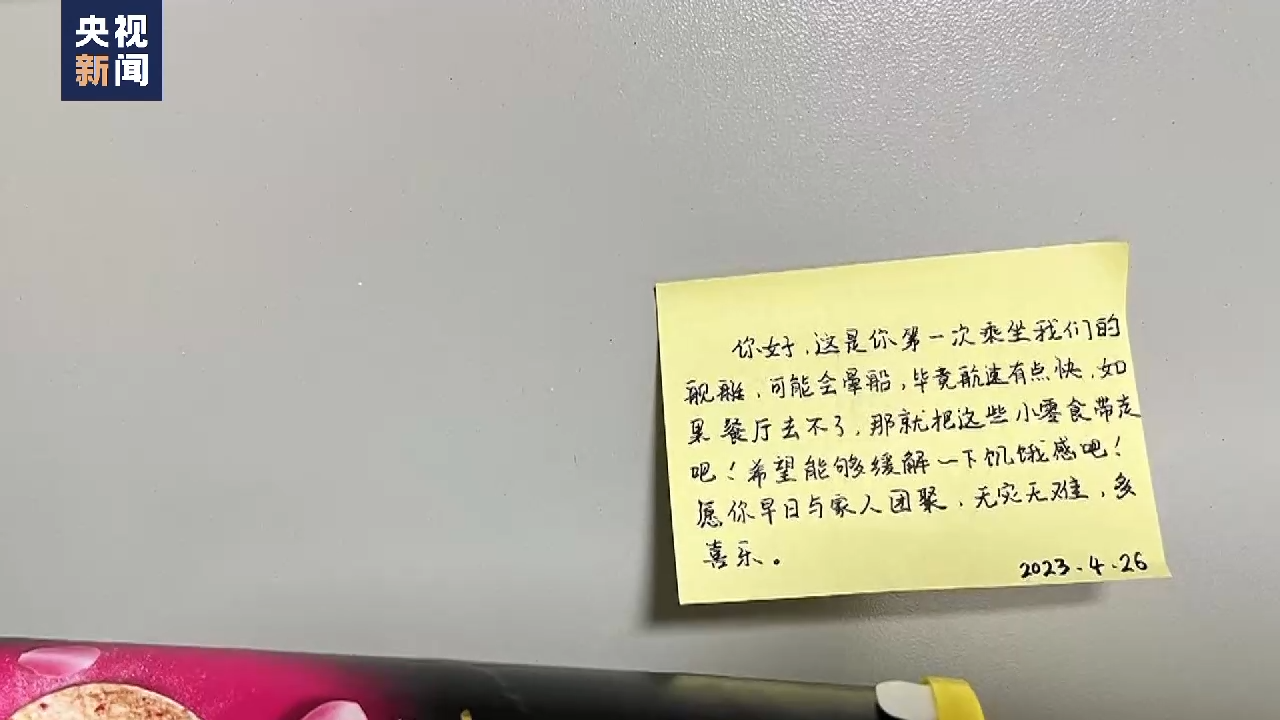 央视
新闻
你好，这是你第一次乘坐我们的
舰艇，可能会晕船，毕竟航速有点快，如
果餐厅去不了，那就把这些小零食带走
吧！希望能够缓解一下饥饿感吧！
愿你早日与家人团聚，无灾无难，多
喜乐。
2023.4.26